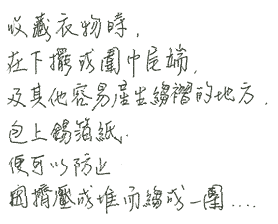 收藏衣物時，
在下擺或圍巾尾端，
及其他容易產生縐褶的地方，
包上錫箔紙，
便可以防止
因擠壓成堆而縐成一團....